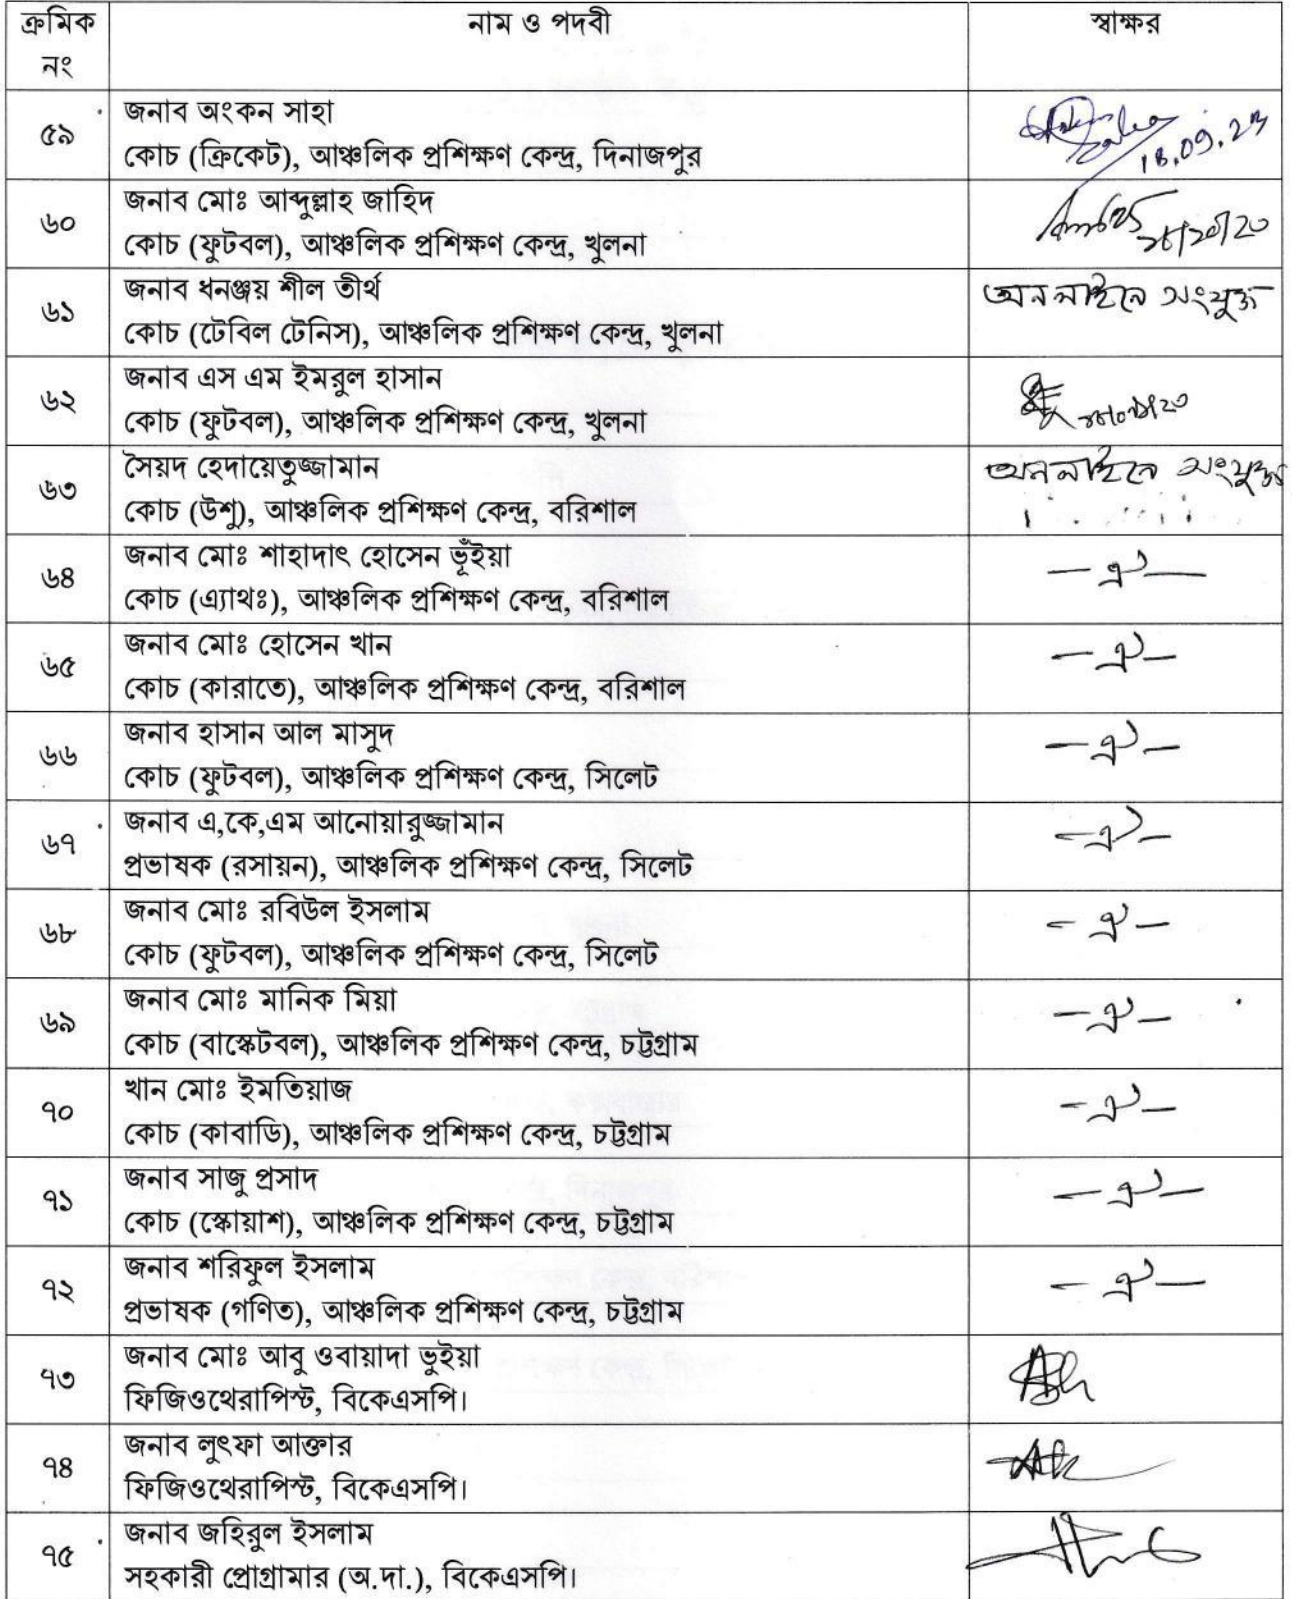 ক্রমিক নং নাম ও পদবী স্বাক্ষর
৫৯ জনাব অংকন সাহা
কোচ (ক্রিকেট), আঞ্চলিক প্রশিক্ষণ কেন্দ্র, দিনাজপুর
18.09.23
৬০ জনাব মোঃ আব্দুল্লাহ জাহিদ
কোচ (ফুটবল), আঞ্চলিক প্রশিক্ষণ কেন্দ্র, খুলনা
৬১ জনাব ধনঞ্জয় শীল তীর্থ
কোচ (টেবিল টেনিস), আঞ্চলিক প্রশিক্ষণ কেন্দ্র, খুলনা
অনলাইনে সংযুক্ত
৬২ জনাব এস এম ইমরুল হাসান
কোচ (ফুটবল), আঞ্চলিক প্রশিক্ষণ কেন্দ্র, খুলনা
৬৩ সৈয়দ হেদায়েতুজ্জামান
কোচ (উশু), আঞ্চলিক প্রশিক্ষণ কেন্দ্র, বরিশাল
অনলাইনে সংযুক্ত
৬৪ জনাব মোঃ শাহাদাৎ হোসেন ভূঁইয়া
কোচ (এ্যাথঃ), আঞ্চলিক প্রশিক্ষণ কেন্দ্র, বরিশাল
— ঐ —
৬৫ জনাব মোঃ হোসেন খান
কোচ (কারাতে), আঞ্চলিক প্রশিক্ষণ কেন্দ্র, বরিশাল
— ঐ —
৬৬ জনাব হাসান আল মাসুদ
কোচ (ফুটবল), আঞ্চলিক প্রশিক্ষণ কেন্দ্র, সিলেট
— ঐ —
৬৭ জনাব এ,কে,এম আনোয়ারুজ্জামান
প্রভাষক (রসায়ন), আঞ্চলিক প্রশিক্ষণ কেন্দ্র, সিলেট
— ঐ —
৬৮ জনাব মোঃ রবিউল ইসলাম
কোচ (ফুটবল), আঞ্চলিক প্রশিক্ষণ কেন্দ্র, সিলেট
— ঐ —
৬৯ জনাব মোঃ মানিক মিয়া
কোচ (বাস্কেটবল), আঞ্চলিক প্রশিক্ষণ কেন্দ্র, চট্টগ্রাম
— ঐ —
৭০ খান মোঃ ইমতিয়াজ
কোচ (কাবাডি), আঞ্চলিক প্রশিক্ষণ কেন্দ্র, চট্টগ্রাম
— ঐ —
৭১ জনাব সাজু প্রসাদ
কোচ (স্কোয়াশ), আঞ্চলিক প্রশিক্ষণ কেন্দ্র, চট্টগ্রাম
— ঐ —
৭২ জনাব শরিফুল ইসলাম
প্রভাষক (গণিত), আঞ্চলিক প্রশিক্ষণ কেন্দ্র, চট্টগ্রাম
— ঐ —
৭৩ জনাব মোঃ আবু ওবায়াদা ভুইয়া
ফিজিওথেরাপিস্ট, বিকেএসপি।
৭৪ জনাব লুৎফা আক্তার
ফিজিওথেরাপিস্ট, বিকেএসপি।
৭৫ জনাব জহিরুল ইসলাম
সহকারী প্রোগ্রামার (অ.দা.), বিকেএসপি।